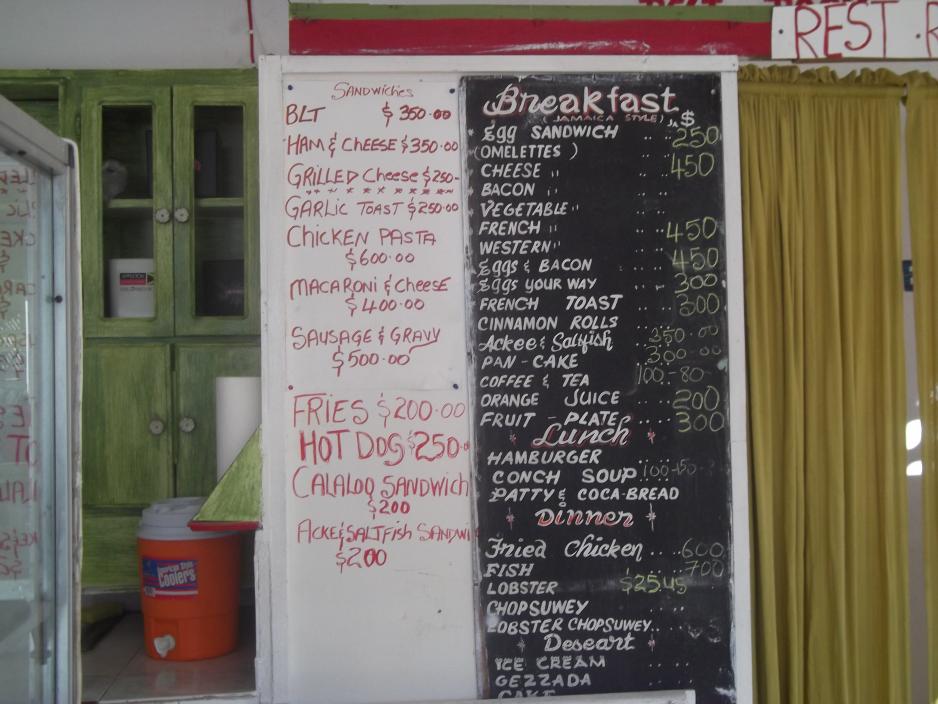 REST
Sandwiches
BLT $350.00
HAM & CHEESE $350.00
GRILLED Cheese $250-
GARLIC TOAST $250.00
Chicken PASTA
$600.00
MACARONI & CheesE
$400.00
SAUSAGE & GRAVY
$500.00
FRIES $200.00
HOT DOG $250.
CALALOO SANDWICH
$200
ACKE&SALTFISH SANDWI
$200
Breakfast
(JAMAICA STYLE) JA$
Egg SANDWICH .. .. 250
(OMELETTES ) .. ..
CHEESE " .. .. 450
BACON " .. ..
VEGETABLE "
FRENCH " .. .. 450
WESTERN "
Eggs & BACON .... 450
Eggs YOUR WAY .... 300
FRENCH TOAST .... 300
CINNAMON ROLLS
Ackee & Saltfish 350-00
PAN-CAKE 300-00
COFFEE & TEA 100-80-
ORANGE JUICE .... 200
FRUIT - PLATE .... 300
Lunch
HAMBURGER
CONCH SOUP 100-150-
PATTY & COCA-BREAD
Dinner
Fried Chicken .... 600
FISH .... 700
LOBSTER $25US
CHOPSUWEY
LOBSTER CHOPSUWEY....
Deseart
ICE CREAM ....
GEZZADA ....
CAKE
American Style
Coolers